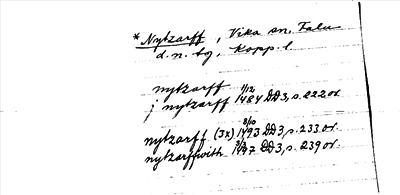 * Nytzarff, Vika sn, Falu
d. n. tg, Kopp. l.
nytzarff
j nytzarff 1/12 1484 DD 3, s. 222 or.
nytzarff (3x) 8/10 1493 DD 3, s. 233 or.
nytzarffwith 1497 DD 3, s. 239 or.